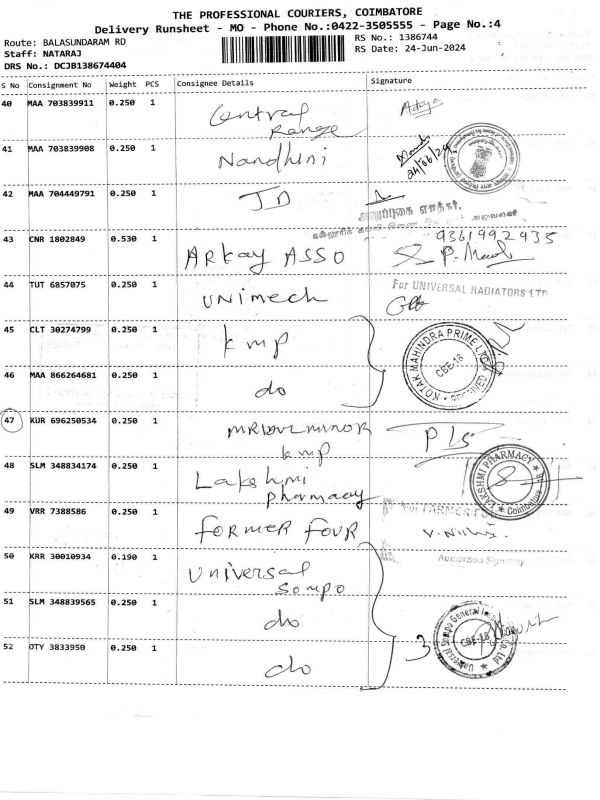 THE PROFESSIONAL COURIERS, COIMBATORE
Delivery Runsheet - MO - Phone No.:0422-3505555 - Page No.:4
Route: BALASUNDARAM RD
Staff: NATARAJ
DRS No.: DCJB138674404
RS No.: 1386744
RS Date: 24-Jun-2024
S No Consignment No Weight PCS Consignee Details Signature
40 MAA 703839911 0.250 1 Central Range
41 MAA 703839908 0.250 1 Nandhini 24/06/24
42 MAA 704449791 0.250 1 JD
43 CNR 1802849 0.530 1 ARKAY ASSO 9361992435
44 TUT 6857075 0.250 1 UNIMECH For UNIVERSAL RADIATORS LTD
45 CLT 30274799 0.250 1 kmp
KOTAK MAHINDRA PRIME LTD * RECEIVED * CBE-18
46 MAA 866264681 0.250 1 do
47 KUR 696250534 0.250 1 kmp
48 SLM 348834174 0.250 1 Lakshmi pharmacy
LAKSHMI PHARMACY * Coimbatore
49 VRR 7388586 0.250 1 FORMER FOUR
50 KRR 30010934 0.190 1 Universal Sompo Authorised Signatory
51 SLM 348839565 0.250 1 do
52 OTY 3833950 0.250 1 do 3
Universal Sompo General CBE-18